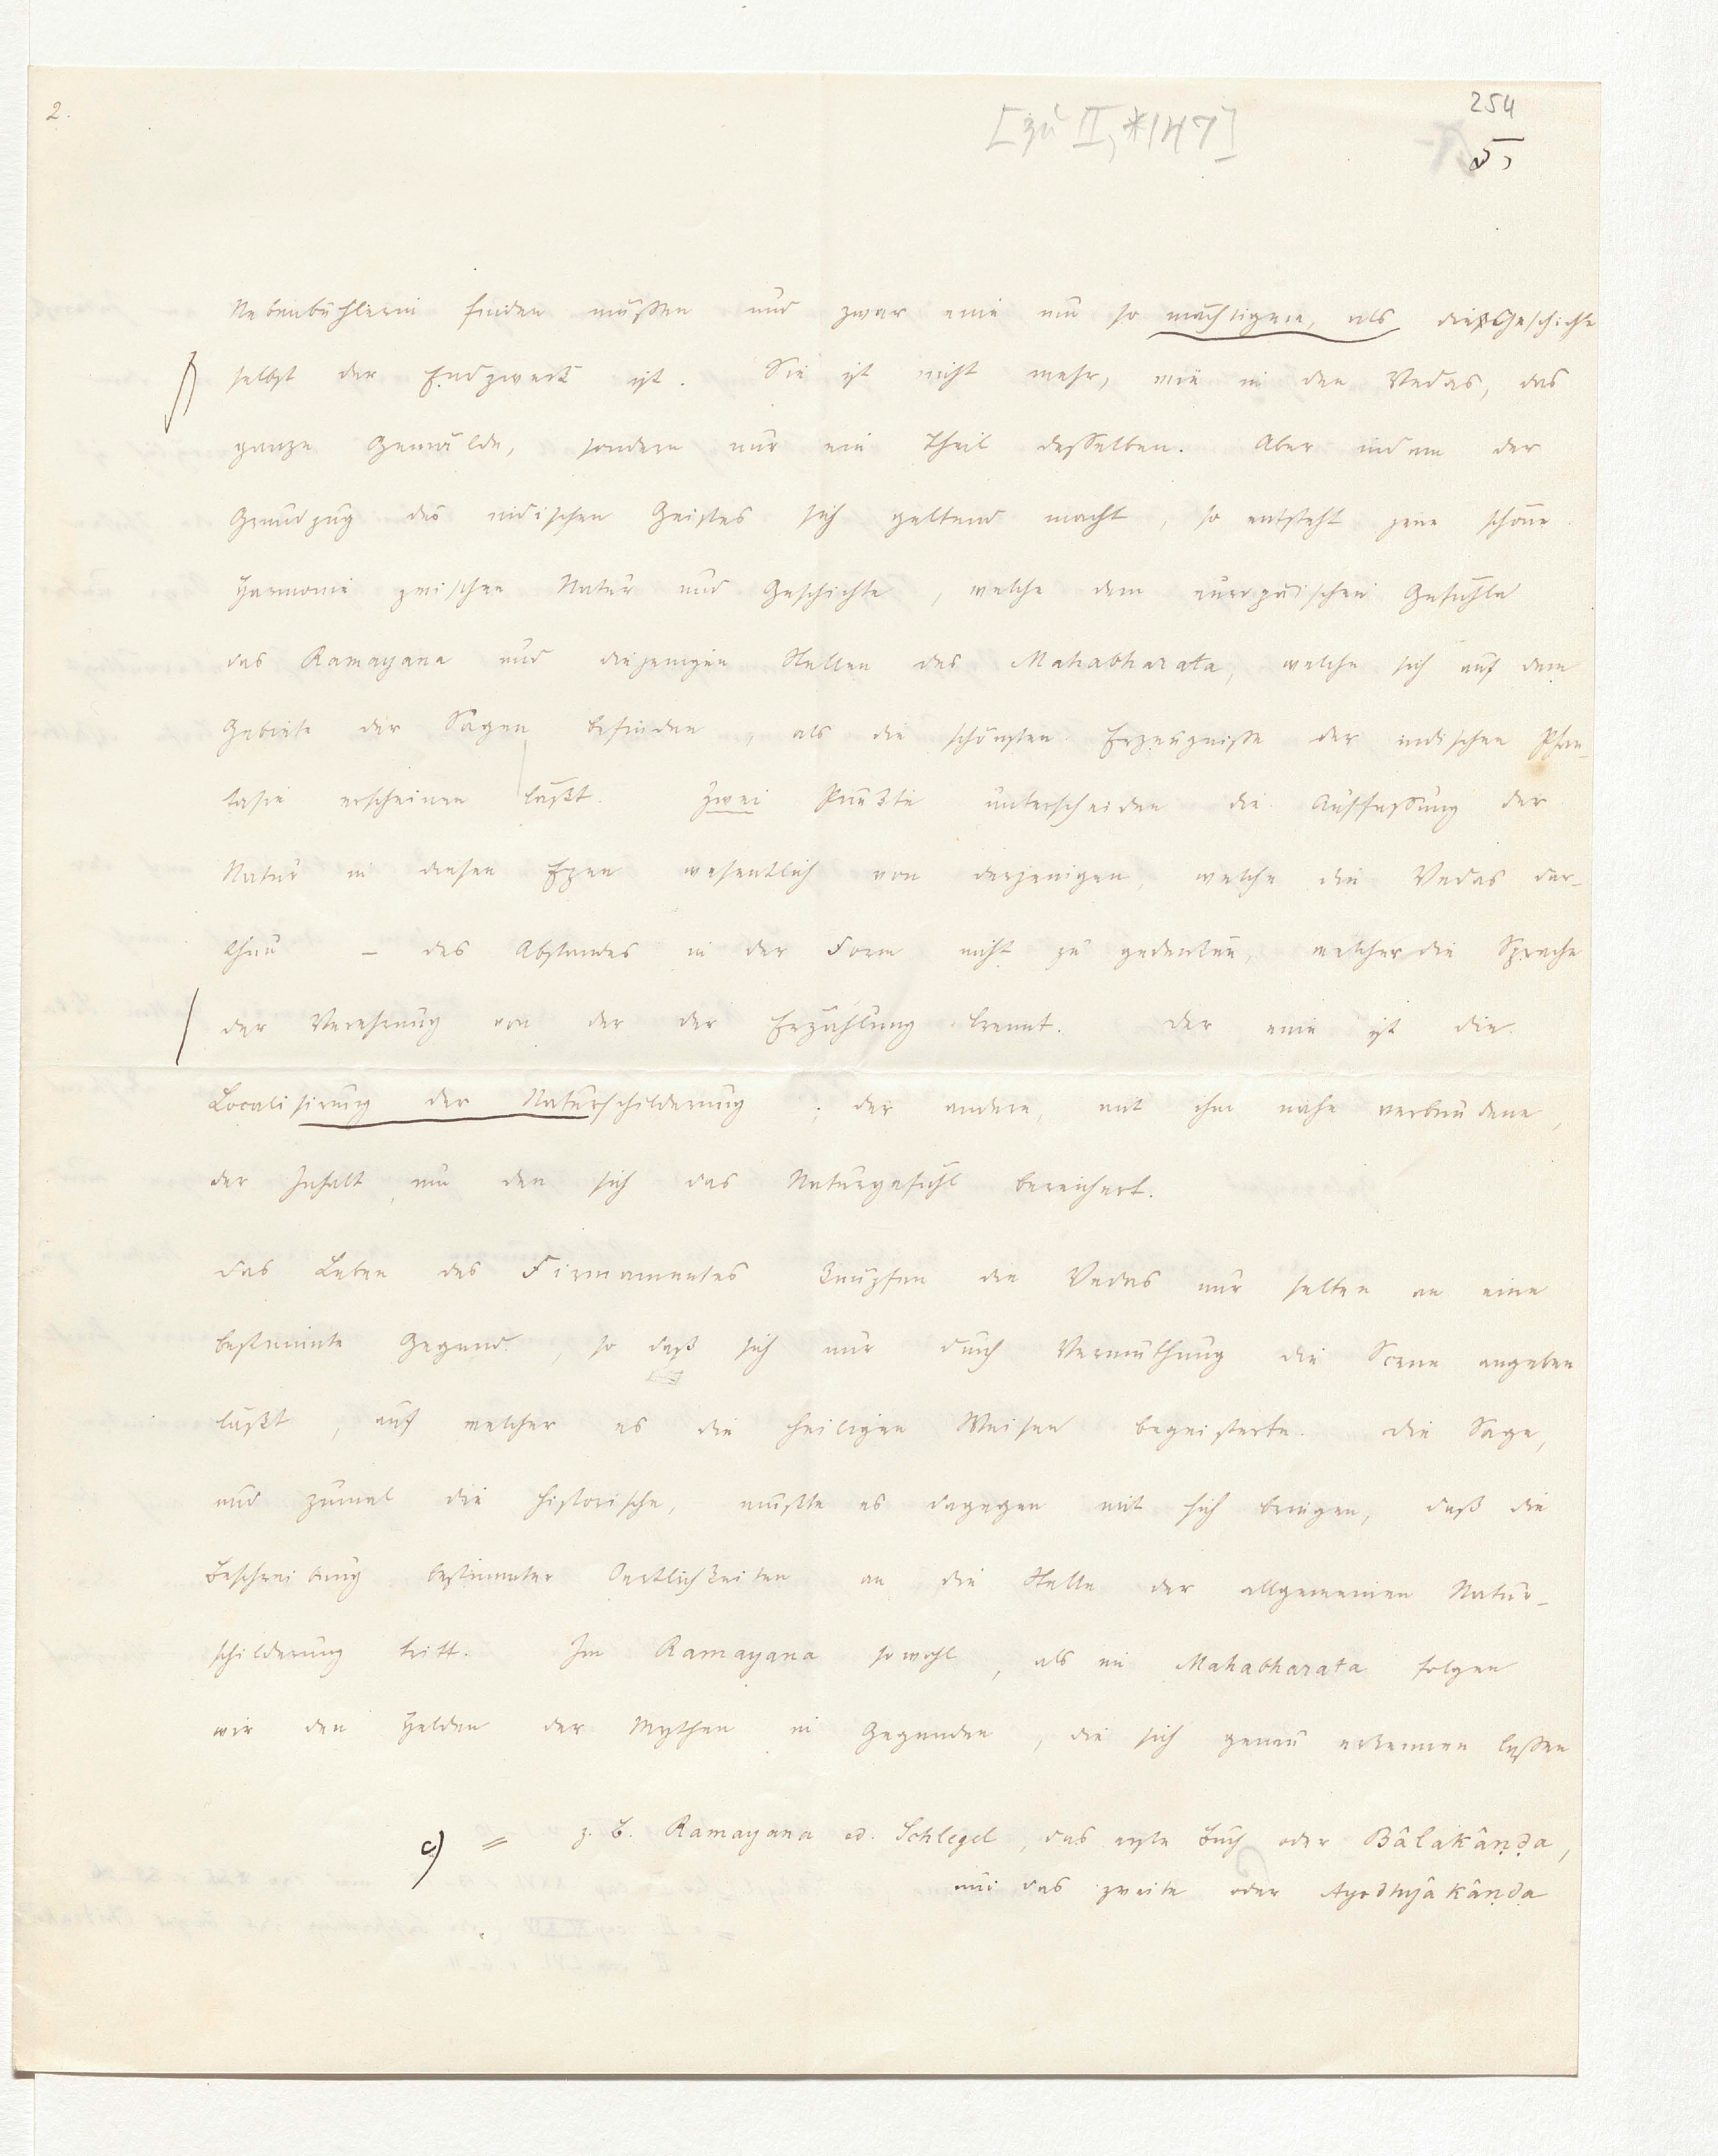 2.
254
[zu II, *147]
5,
Nebenbuhlerin finden müssen und zwar eine um so mächtigere, als die Geschichte
selbst der Endzweck ist. Sie ist nicht mehr, wie in den Vedas, das
ganze Gemälde, sondern nur ein Theil desselben. Aber indem der
Grundzug des indischen Geistes sich geltend macht, so entsteht jene schöne
Harmonie zwischen Natur und Geschichte, welche dem europäischen Gefühle
das Ramayana und diejenigen Stellen des Mahabharata, welche sich auf dem
Gebiete der Sagen befinden, als die schönsten Erzeugnisse der indischen Phan-
tasie erscheinen läßt. Zwei Punkte unterscheiden die Auffassung der
Natur in diesen Epen wesentlich von derjenigen, welche die Vedas dar-
thun – des Abstandes in der Form nicht zu gedenken, welcher die Sprache
der Verehrung von der der Erzählung trennt. Der eine ist die
Localisirung der Naturschilderung; der andere, mit ihm nahe verbundene,
der Inhalt, um den sich das Naturgefühl bereichert.
Das Leben des Firmamentes knüpfen die Vedas nur selten an eine
bestimmte Gegend, so daß sich nur durch Vermuthung die Scene angeben
läßt, auf welcher es die heiligen Weisen begeisterte. Die Sage,
und zumal die historische, mußte es dagegen mit sich bringen, daß die
Beschreibung bestimmter Oertlichkeiten an die Stelle der allgemeinen Natur-
schilderung tritt. Im Ramayana sowohl, als im Mahabharata folgen
wir den Helden der Mythen in Gegenden, die sich genau erkennen lassen
c) = z. B. Ramayana ed. Schlegel, das erste Buch oder Bâlakâṇḍa,
und das zweite oder Ayodhyâkâṇḍa